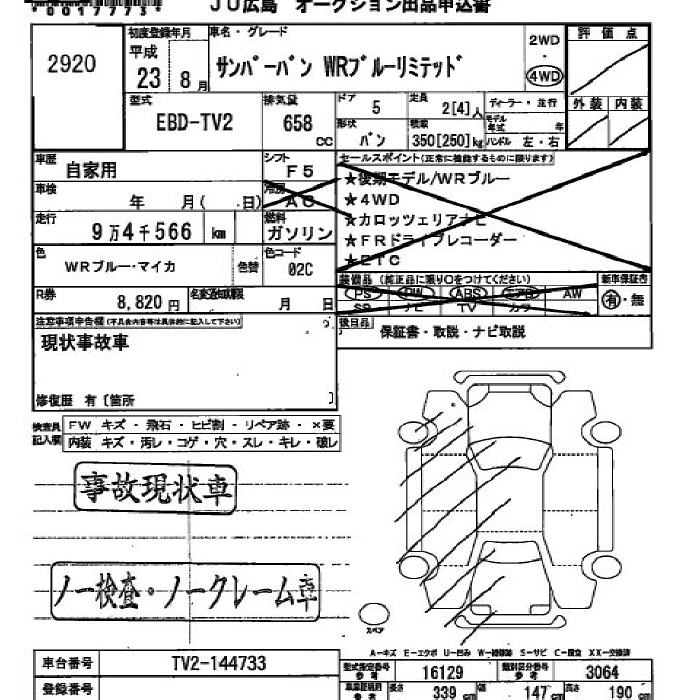 *0017773*
JU広島 オークション出品申込書
2920
初度登録年月
平成
23 8月
車名・グレード
サンバーバン WRブルーリミテッド
2WD
・
4WD
評価点
外装 内装
型式
EBD-TV2
排気量
658
cc
ドア
5
形状
バン
定員
2[4]人
積載
350[250]kg
ディーラー・並行
モデル年式 年
ハンドル 左・右
車歴
自家用
シフト
F5
車検
年 月( 日)
冷房
AC
走行
9万4千566 km
燃料
ガソリン
色
WRブルー・マイカ
色替
色コード
02C
R券
8,820円
名変通知期限
月 日
セールスポイント(正常に機能するものに限ります)
★後期モデル/WRブルー
★4WD
★カロッツェリアナビ
★FRドライブレコーダー
★ETC
装備品 (純正品に限り○をつけてください)
PS PW ABS エアB AW
SR ナビ TV カワ
新車保証書
有・無
注意事項申告欄(不具合内容等は具体的に記入して下さい)
現状事故車
修復歴 有〔箇所 〕
後日品
保証書・取説・ナビ取説
検査員記入欄
FW キズ・飛石・ヒビ割・リペア跡・×要
内装 キズ・汚レ・コゲ・穴・スレ・キレ・破レ
事故現状車
ノー検査・ノークレーム車
スペア
A-キズ E-エクボ U-凹み W-補修跡 S-サビ C-腐食 XX-交換済
車台番号
TV2-144733
登録番号
型式指定番号 参考
16129
類別区分番号 参考
3064
車車証規格 参考
長さ 339 cm 幅 147 cm 高さ 190 cm